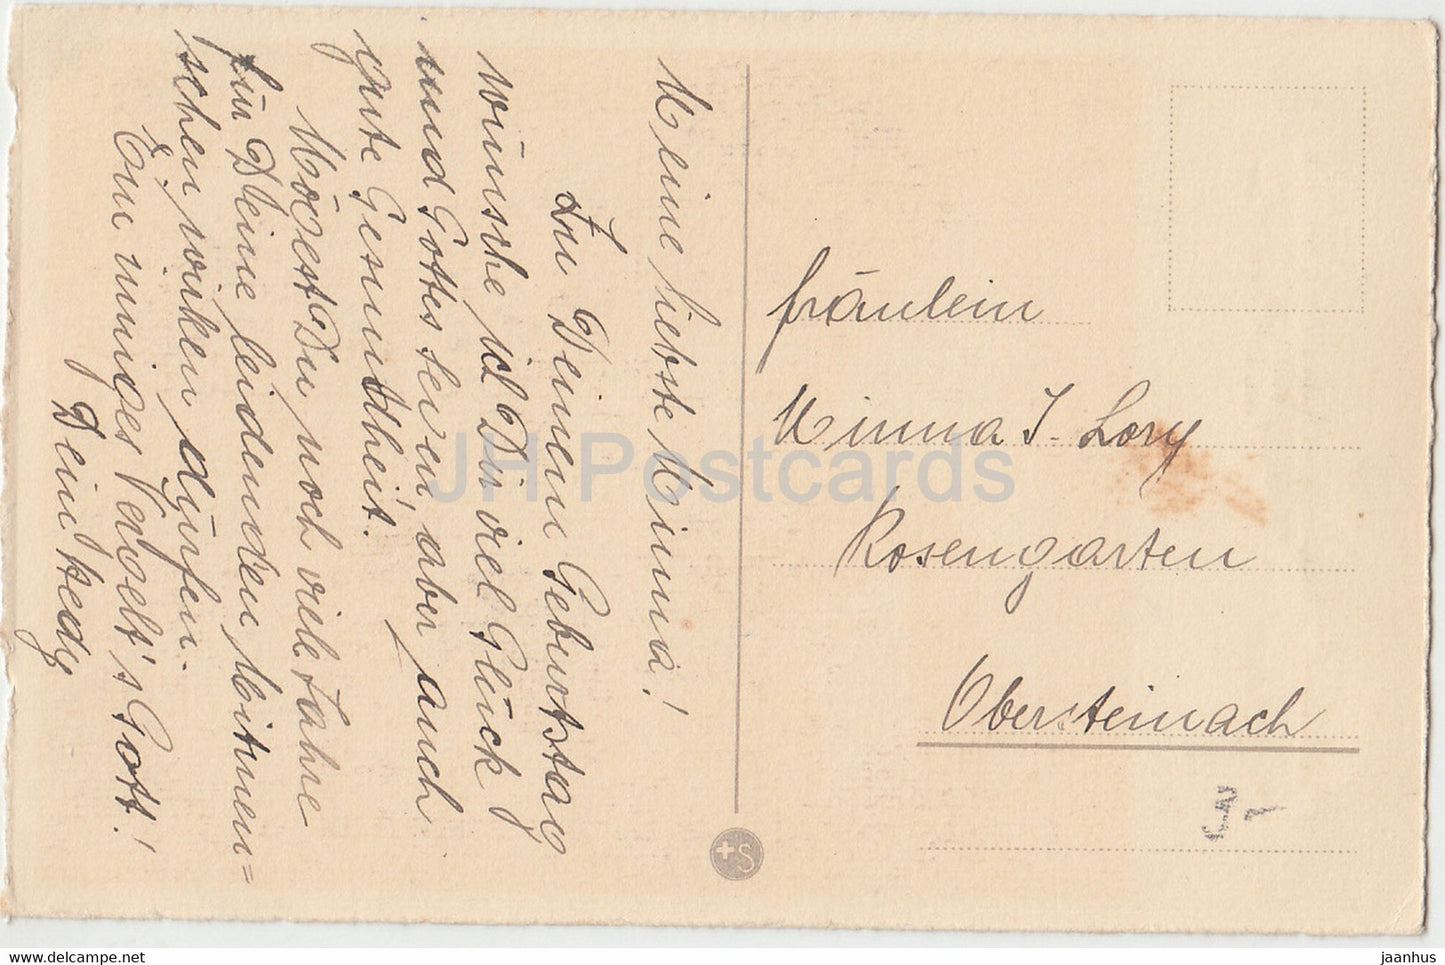 Meine liebste Minna!
Zu Deinem Geburtstag
wünsche ich Dir viel Glück
und Gottes Segen, aber auch
gute Gesundheit.
Mögest Du noch viele Jahre
für Deine leidenden Mitmen=
schen wirken dürfen.
Ein inniges Vergelt's Gott!
Dein Hedy
Fräulein
Minna J. Lory
Rosengarten
Obersteinach
+S
JH Postcards
delcampe.net
jaanhus